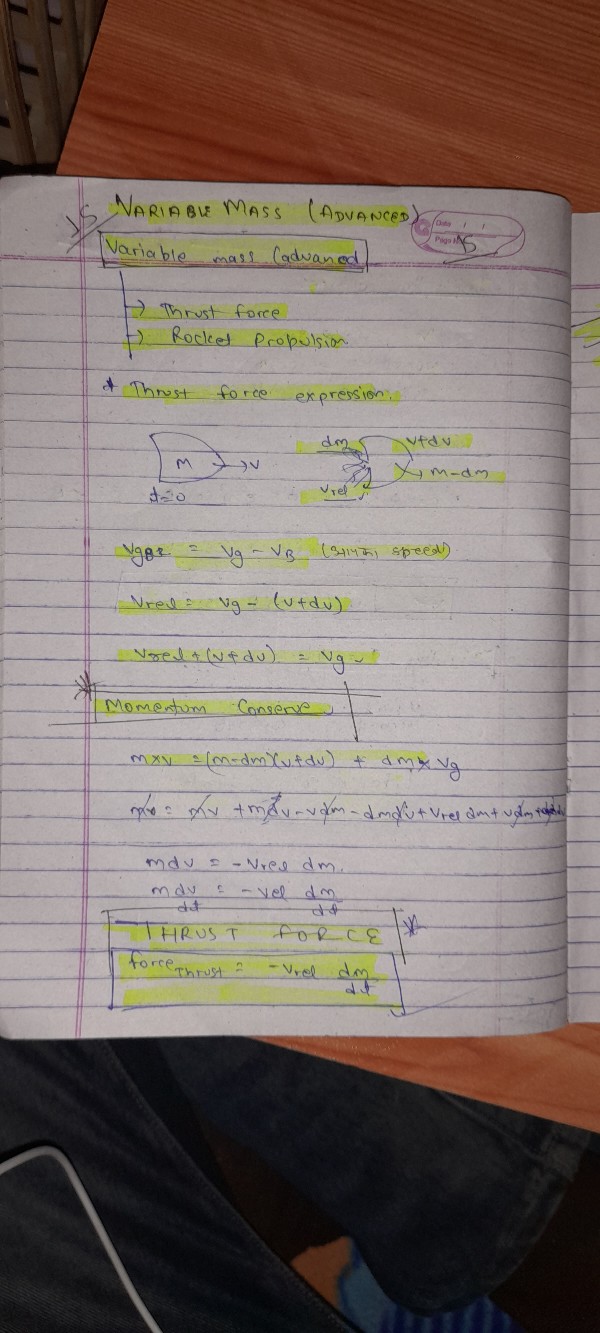 15
VARIABLE MASS (ADVANCED)
Date / /
Page No
15
Variable mass (advaned
→ Thrust force
→ Rocket Propulsion
* Thrust force expression.
M → v
t=0
dm v+dv
m-dm
Vrel
= Vg - VB ( speed)
Vrel = Vg - (v+dv)
Vrel+(v+dv) = Vg
Momentum Conserve
m×v = (m-dm)(v+dv) + dm × Vg
mv = mv + mdv - vdm - dmdv + Vrel dm + vdm +
mdv = -Vrel dm.
mdv/dt = -Vel dm/dt
THRUST FORCE
force Thrust = -Vrel dm/dt